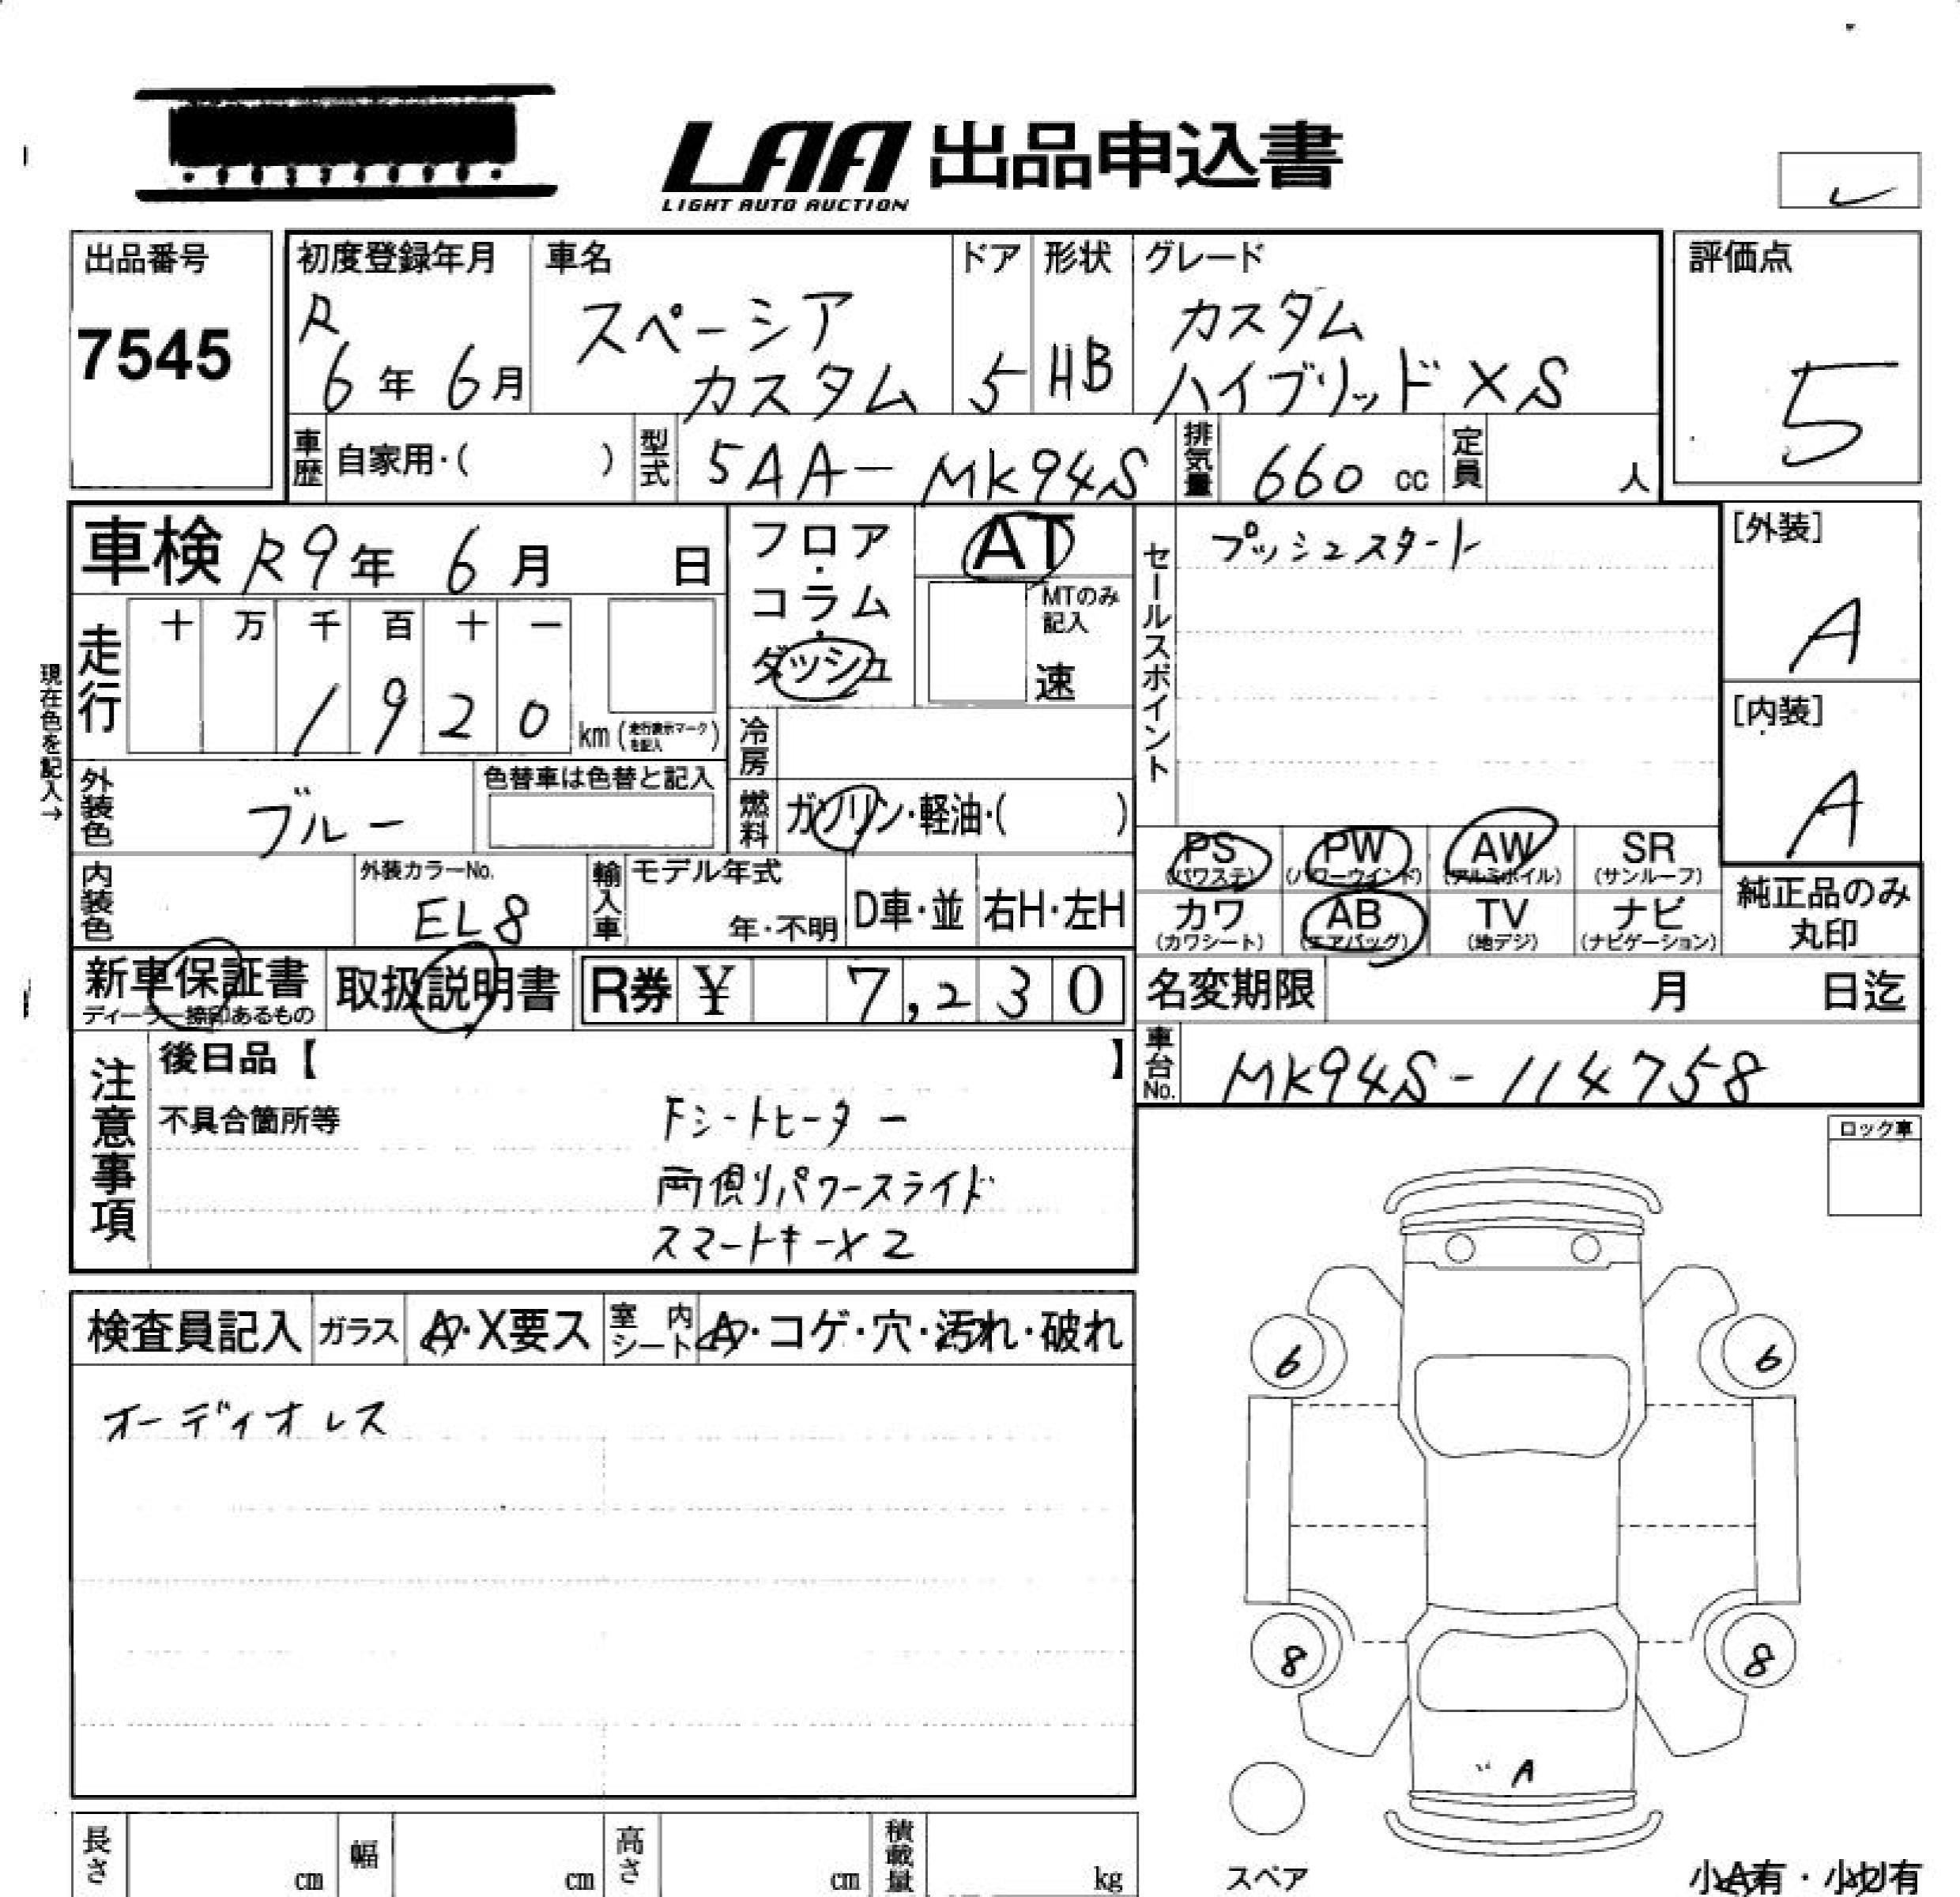 LAA 出品申込書
LIGHT AUTO AUCTION
出品番号
7545
初度登録年月
R
6年 6月
車名
スペーシア
カスタム
ドア
5
形状
HB
グレード
カスタム
ハイブリッド XS
評価点
5
車歴 自家用・( )
型式 5AA-MK94S
排気量 660 cc
定員 人
車検 R9年 6月 日
フロア・コラム・ダッシュ
AT
MTのみ記入
速
セールスポイント
プッシュスタート
[外装]
A
[内装]
A
現在色を記入→
走行
十 万 千 百 十 一
1 9 2 0 km (走行表示マークを記入)
冷房
外装色 ブルー
色替車は色替と記入
燃料 ガソリン・軽油・( )
PS (パワステ)
PW (パワーウインド)
AW (アルミホイル)
SR (サンルーフ)
カワ (カワシート)
AB (エアバッグ)
TV (地デジ)
ナビ (ナビゲーション)
純正品のみ
丸印
内装色
外装カラーNo.
EL8
輸入車
モデル年式
年・不明
D車・並
右H・左H
新車保証書
ディーラー捺印あるもの
取扱説明書
R券 ¥ 7,230
名変期限 月 日迄
車台No. MK94S-114758
注意事項
後日品【 】
不具合箇所等
Fシートヒーター
両側パワースライド
スマートキー×2
ロック車
検査員記入
ガラス A・X要ス
室内シート A・コゲ・穴・汚れ・破れ
オーディオレス
6 6
8 8
A
スペア
小A有・小U有
長さ cm
幅 cm
高さ cm
積載量 kg